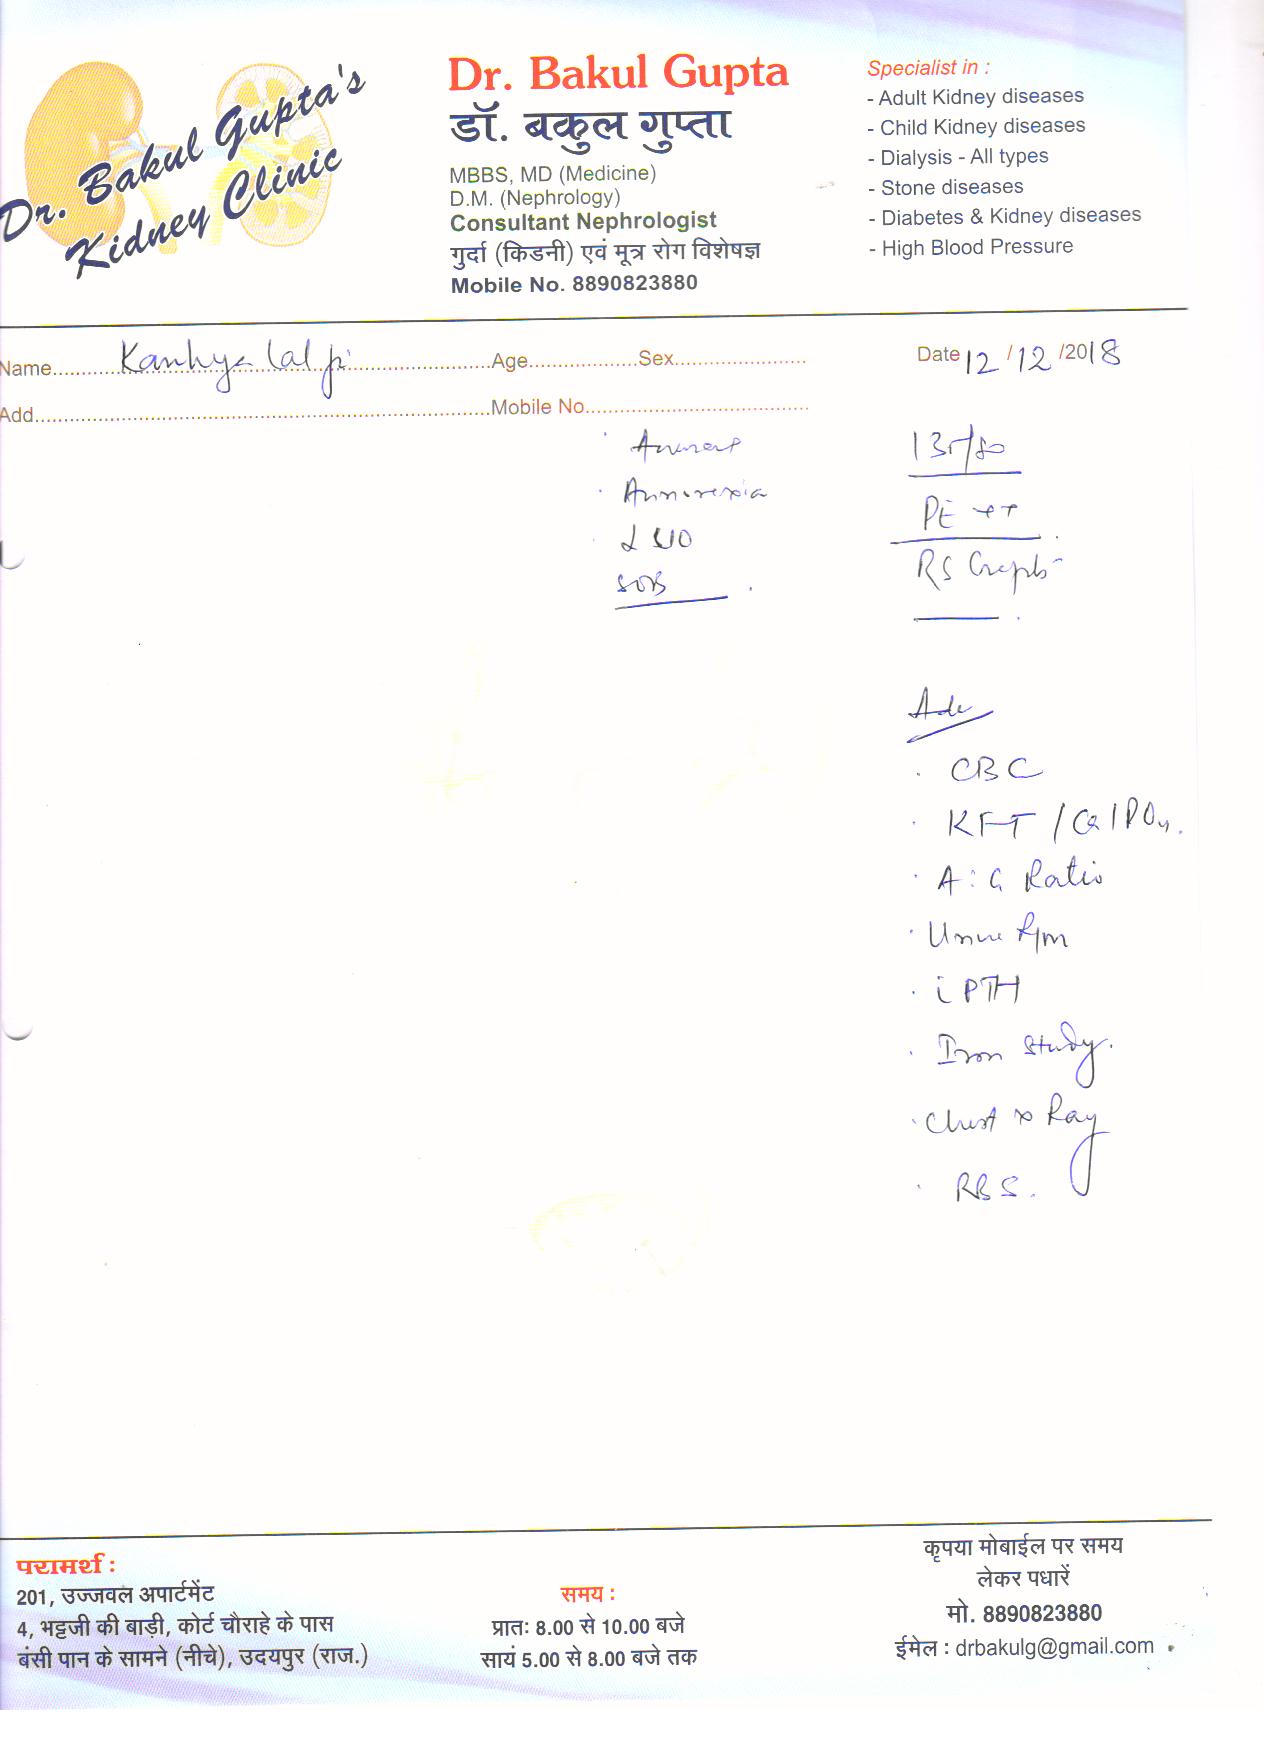 Dr. Bakul Gupta's
Kidney Clinic
Dr. Bakul Gupta
डॉ. बकुल गुप्ता
MBBS, MD (Medicine)
D.M. (Nephrology)
Consultant Nephrologist
गुर्दा (किडनी) एवं मूत्र रोग विशेषज्ञ
Mobile No. 8890823880
Specialist in :
- Adult Kidney diseases
- Child Kidney diseases
- Dialysis - All types
- Stone diseases
- Diabetes & Kidney diseases
- High Blood Pressure
Name Kanhya lal ji Age Sex Date 12/12/2018
Add Mobile No.
Annorexia
SOB
PE ++
RS Crepts
Adv
CBC
KFT / Ca / PO4.
A:G Ratio
Urine R/m
iPTH
Iron Study.
Chest x Ray
RBS.
परामर्श :
201, उज्जवल अपार्टमेंट
4, भट्टजी की बाड़ी, कोर्ट चौराहे के पास
बंसी पान के सामने (नीचे), उदयपुर (राज.)
समय :
प्रातः 8.00 से 10.00 बजे
सायं 5.00 से 8.00 बजे तक
कृपया मोबाईल पर समय
लेकर पधारें
मो. 8890823880
ईमेल : drbakulg@gmail.com